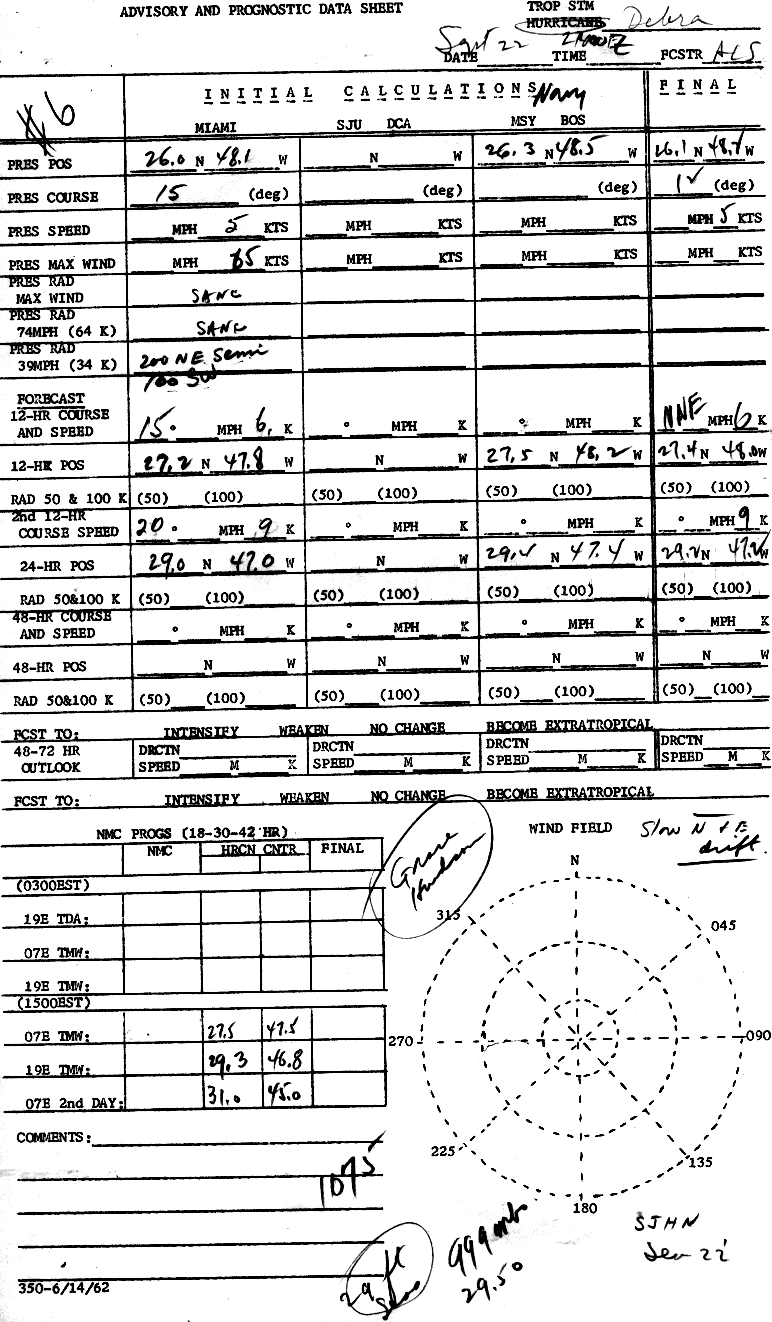 ADVISORY AND PROGNOSTIC DATA SHEET
TROP STM
HURRICANE Debra
DATE Sept 22 TIME FCSTR ALS
6
INITIAL CALCULATIONS Navy FINAL
MIAMI SJU DCA MSY BOS
PRES POS 26.0 N 48.1 W N W 26.3 N 48.5 W 26.1 N W
PRES COURSE 15 (deg) (deg) (deg) (deg)
PRES SPEED MPH 5 KTS MPH KTS MPH KTS MPH 5 KTS
PRES MAX WIND MPH KTS MPH KTS MPH KTS MPH KTS
PRES RAD
MAX WIND SAME
PRES RAD
74MPH (64 K) SAME
PRES RAD
39MPH (34 K) 200 NE Semi
100 SW
FORECAST
12-HR COURSE
AND SPEED 15° MPH 6 K ° MPH K ° MPH K NNE MPH 6 K
12-HR POS 27.2 N 47.8 W N W 27.5 N 48.2 W 27.4 N 48.0 W
RAD 50 & 100 K (50) (100) (50) (100) (50) (100) (50) (100)
2nd 12-HR
COURSE SPEED 20° MPH 9 K ° MPH K ° MPH K ° MPH 9 K
24-HR POS 29.0 N 47.0 W N W N 47.4 W 29.2 N 47.2 W
RAD 50&100 K (50) (100) (50) (100) (50) (100) (50) (100)
48-HR COURSE
AND SPEED ° MPH K ° MPH K ° MPH K ° MPH K
48-HR POS N W N W N W N W
RAD 50&100 K (50) (100) (50) (100) (50) (100) (50) (100)
FCST TO: INTENSIFY WEAKEN NO CHANGE BECOME EXTRATROPICAL
48-72 HR DRCTN DRCTN DRCTN DRCTN
OUTLOOK SPEED M K SPEED M K SPEED M K SPEED M K
FCST TO: INTENSIFY WEAKEN NO CHANGE BECOME EXTRATROPICAL
NMC PROGS (18-30-42 HR)
NMC HRCN CNTR FINAL
(0300EST)
19E TDA:
07E TMW:
19E TMW:
(1500EST)
07E TMW: 27.5 47.5
19E TMW: 29.3 46.8
07E 2nd DAY: 31.0 45.0
COMMENTS:
1075
350-6/14/62
Grace
Hudson
WIND FIELD
Slow N + E
drift.
N
315
045
270
090
225
135
180
29 ft
999 mb
29.50
SJHN
22